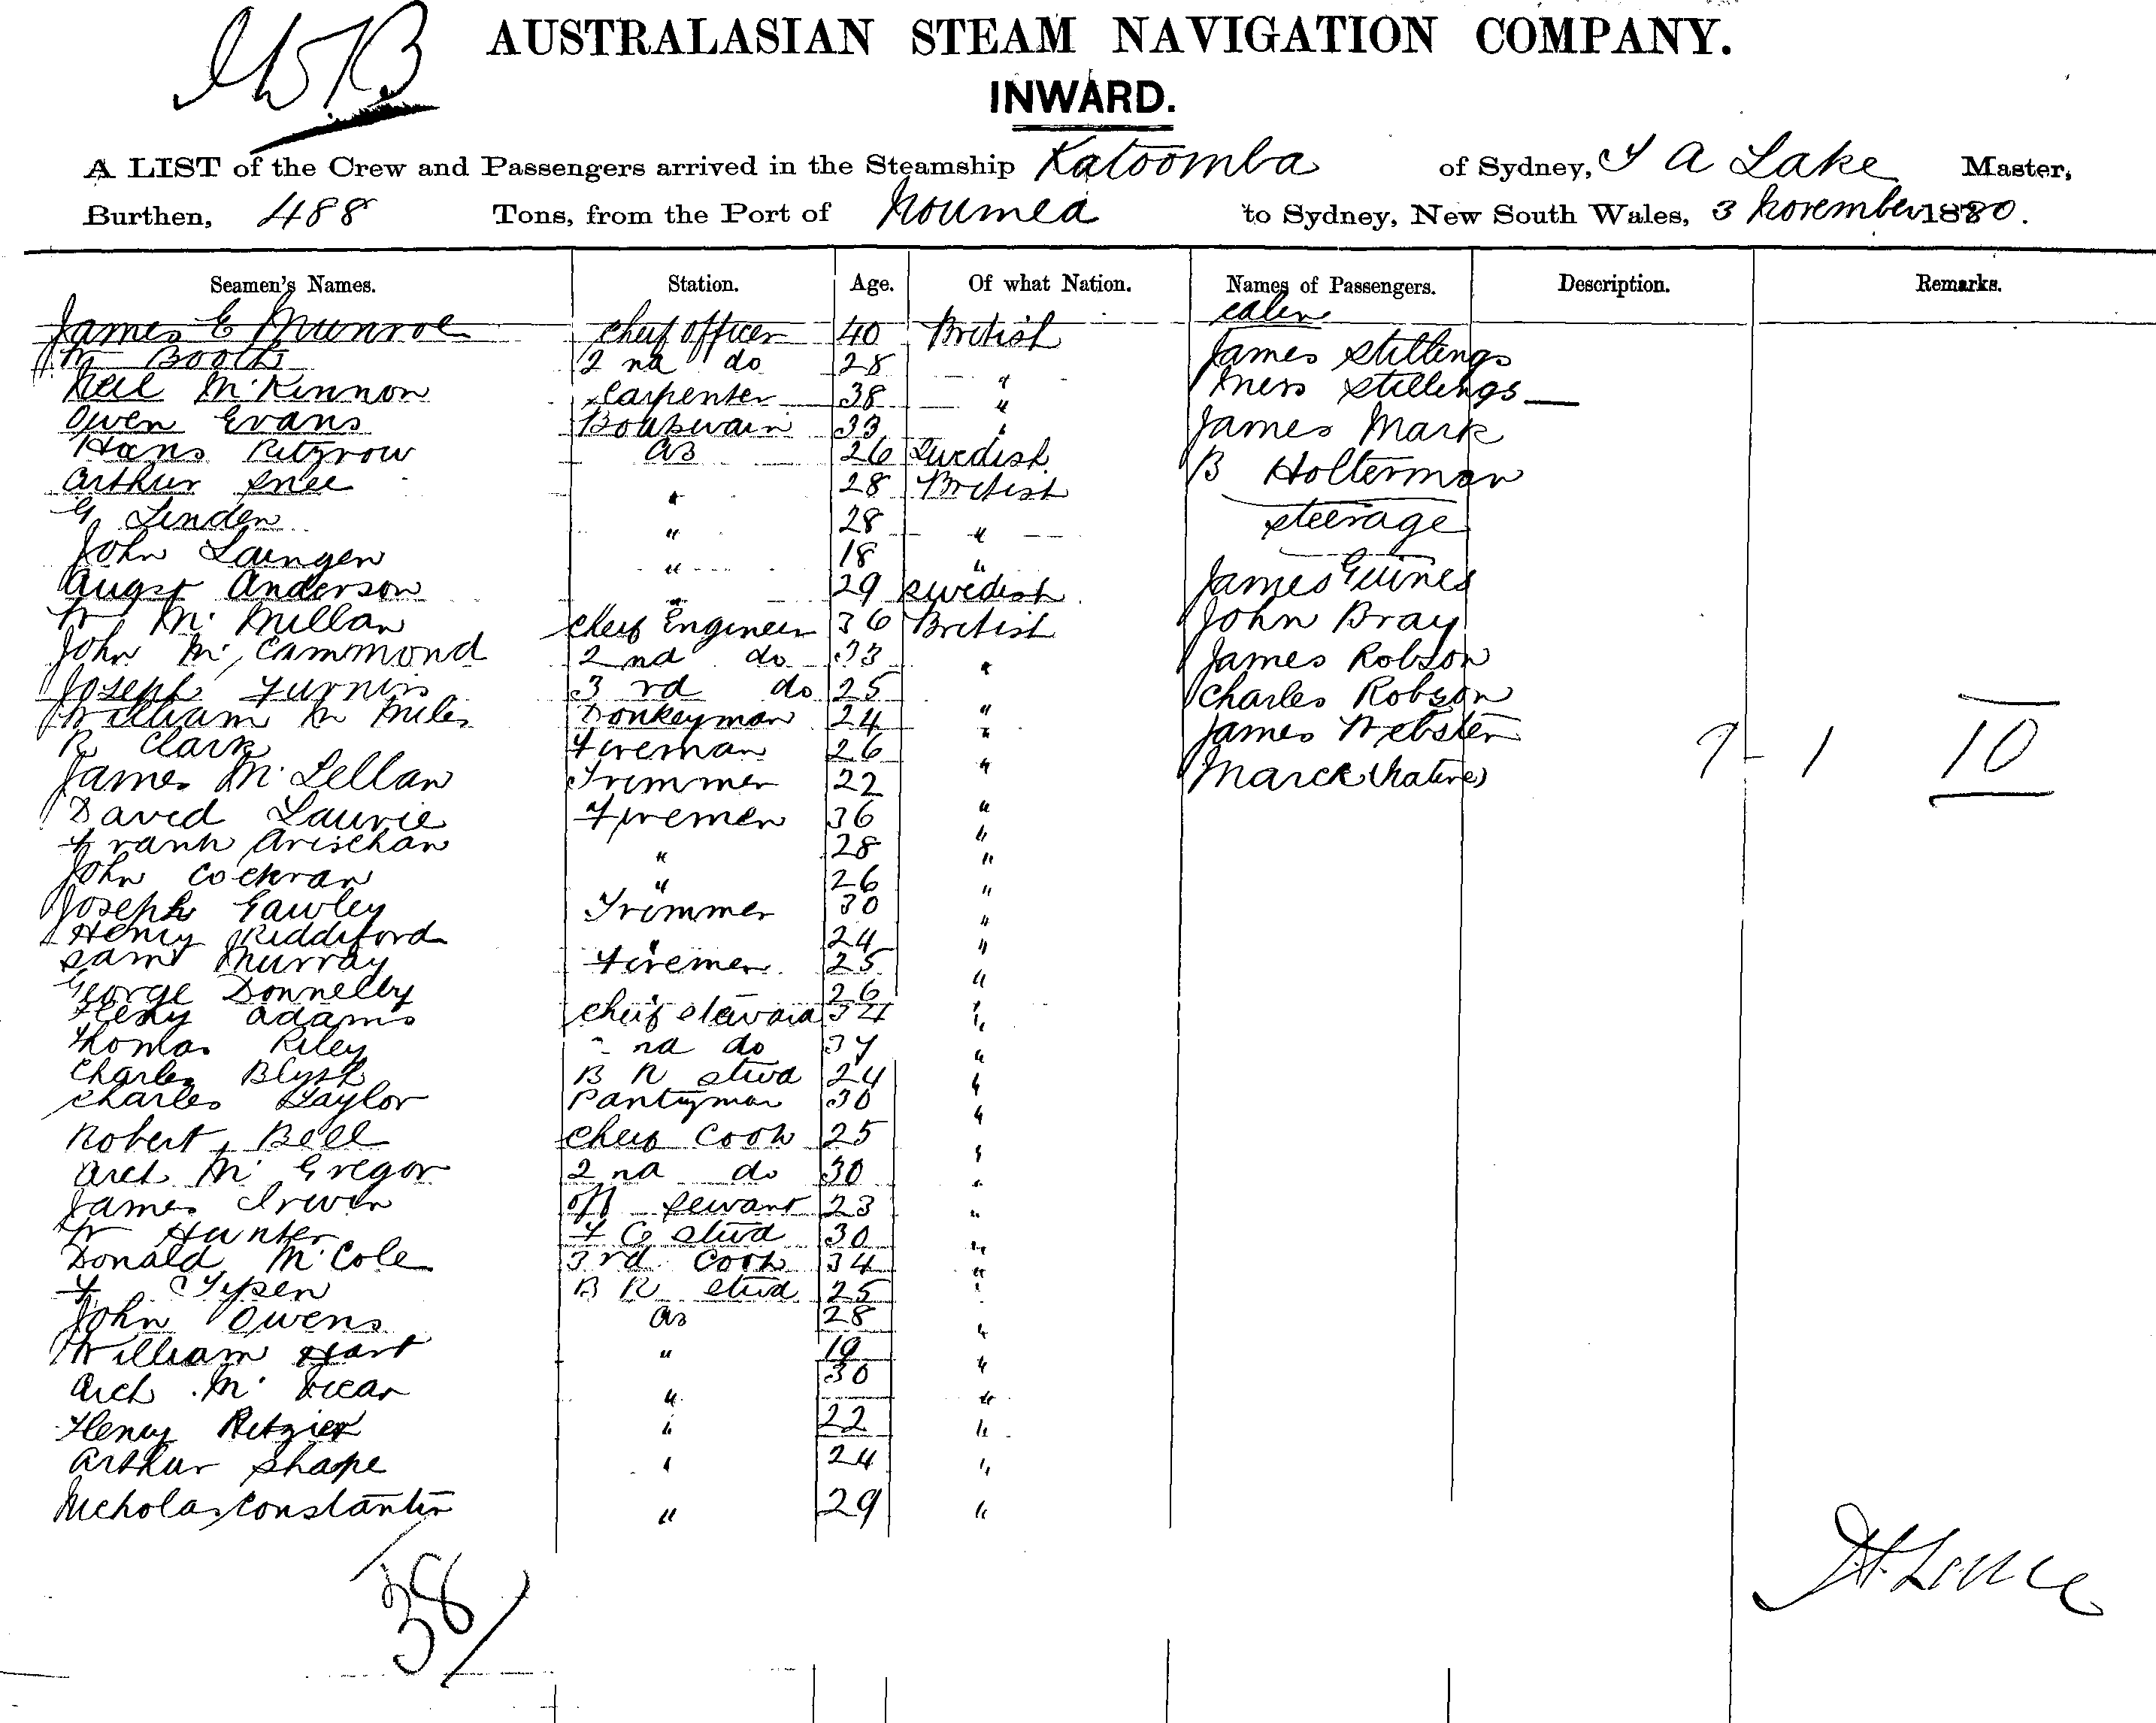 AUSTRALASIAN STEAM NAVIGATION COMPANY.
INWARD.
A LIST of the Crew and Passengers arrived in the Steamship Katoomba of Sydney, Lake Master,
Burthen, 488 Tons, from the Port of Noumea to Sydney, New South Wales, 3 November 1880.
Seamen's Names. Station. Age. Of what Nation. Names of Passengers. Description. Remarks.
cabin
James E Munroe cheif officer 40 British James Stillings
W Booth 2 nd do 28 " Mrs Stillings
Neil McKinnon Carpenter 38 " James Mark
Owen Evans Boatswain 33 " B Holterman
Hans AB 26 Swedish steerage
Arthur Snee " 28 British James Guines
G Linden " 28 " John Bray
John Laingen " 18 " James Robson
Augst Anderson " 29 Swedish Charles Robson
W McMillan cheif Engineer 36 British James Webster
John McCammond 2 nd do 33 " Marck (Native) 1 10
Joseph Furniss 3 rd do 25 "
William Donkeyman 24 "
R Clark Fireman 26 "
James McLellan Trimmer 22 "
David Laurie Firemen 36 "
Frank " 28 "
John Cockran " 26 "
Joseph Gawley Trimmer 30 "
Henry Riddiford " 24 "
Saml Murray Firemen 25 "
George Donnelly " 26 "
Henry Adams cheif steward 34 "
Thomas Riley nd do 37 "
Charles B R stwd 24 "
Charles Taylor Pantryman 30 "
Robert Bell cheif Cook 25 "
Arch McGregor 2 nd do 30 "
James Irwin off servant 23 "
W Hunter F C stwd 30 "
Donald McCole 3rd Cook 34 "
F B R stwd 25 "
John Owens AB 28 "
William Hart " 19 "
Arch McVicar " 30 "
Henry " 22 "
Arthur Shape " 24 "
Nicholas Constantin " 29 "
38